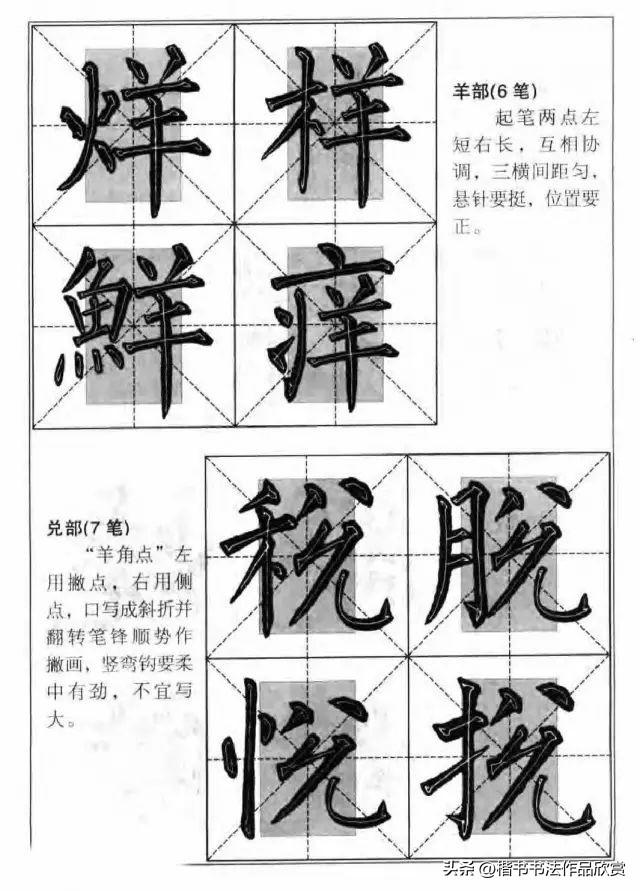 烊样
鮮痒
羊部(6笔)
起笔两点左
短右长，互相协
调，三横间距匀，
悬针要挺，位置要
正。
兑部(7笔)
“羊角点”左
用撇点，右用侧
点，口写成斜折并
翻转笔锋顺势作
撇画，竖弯钩要柔
中有劲，不宜写
大。
税脱
悦挩
头条@楷书书法作品欣赏